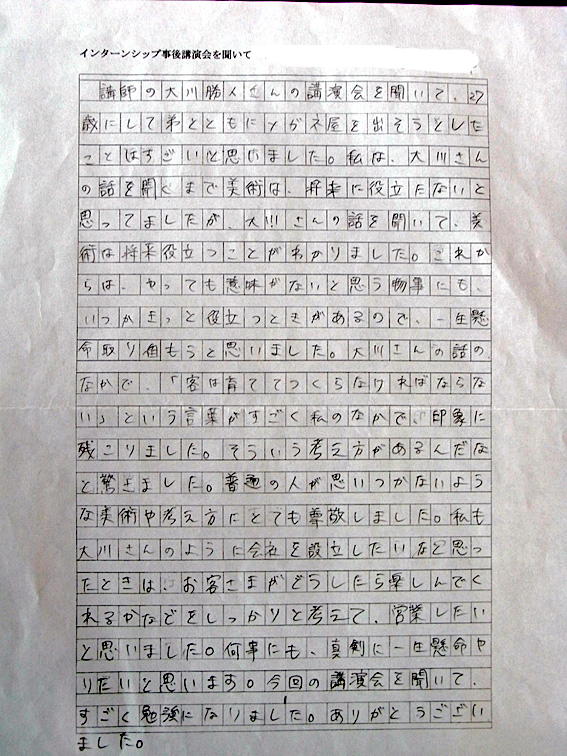 インターンシップ事後講演会を聞いて
講師の大川勝人さんの講演会を聞いて、27
歳にして弟とともにメガネ屋を出そうとした
ことはすごいと思いました。私は、大川さん
の話を聞くまで美術は、将来に役立たないと
思ってましたが、大川さんの話を聞いて、美
術は将来役立つことがわかりました。これか
らは、やっても意味がないと思う物事にも、
いつかきっと役立つときがあるので、一生懸
命取り組もうと思いました。大川さんの話の
なかで、「客は育ててつくらなければならな
い」という言葉がすごく私のなかで、印象に
残こりました。そういう考え方があるんだな
と驚きました。普通の人が思いつかないよう
な美術や考え方にとても尊敬しました。私も
大川さんのように会社を設立したいなと思っ
たときは、お客さまがどうしたら楽しんでく
れるかなどをしっかりと考えて、営業したい
と思いました。何事にも、真剣に一生懸命や
りたいと思います。今回の講演会を聞いて、
すごく勉強になりました。ありがとうござい
ました。